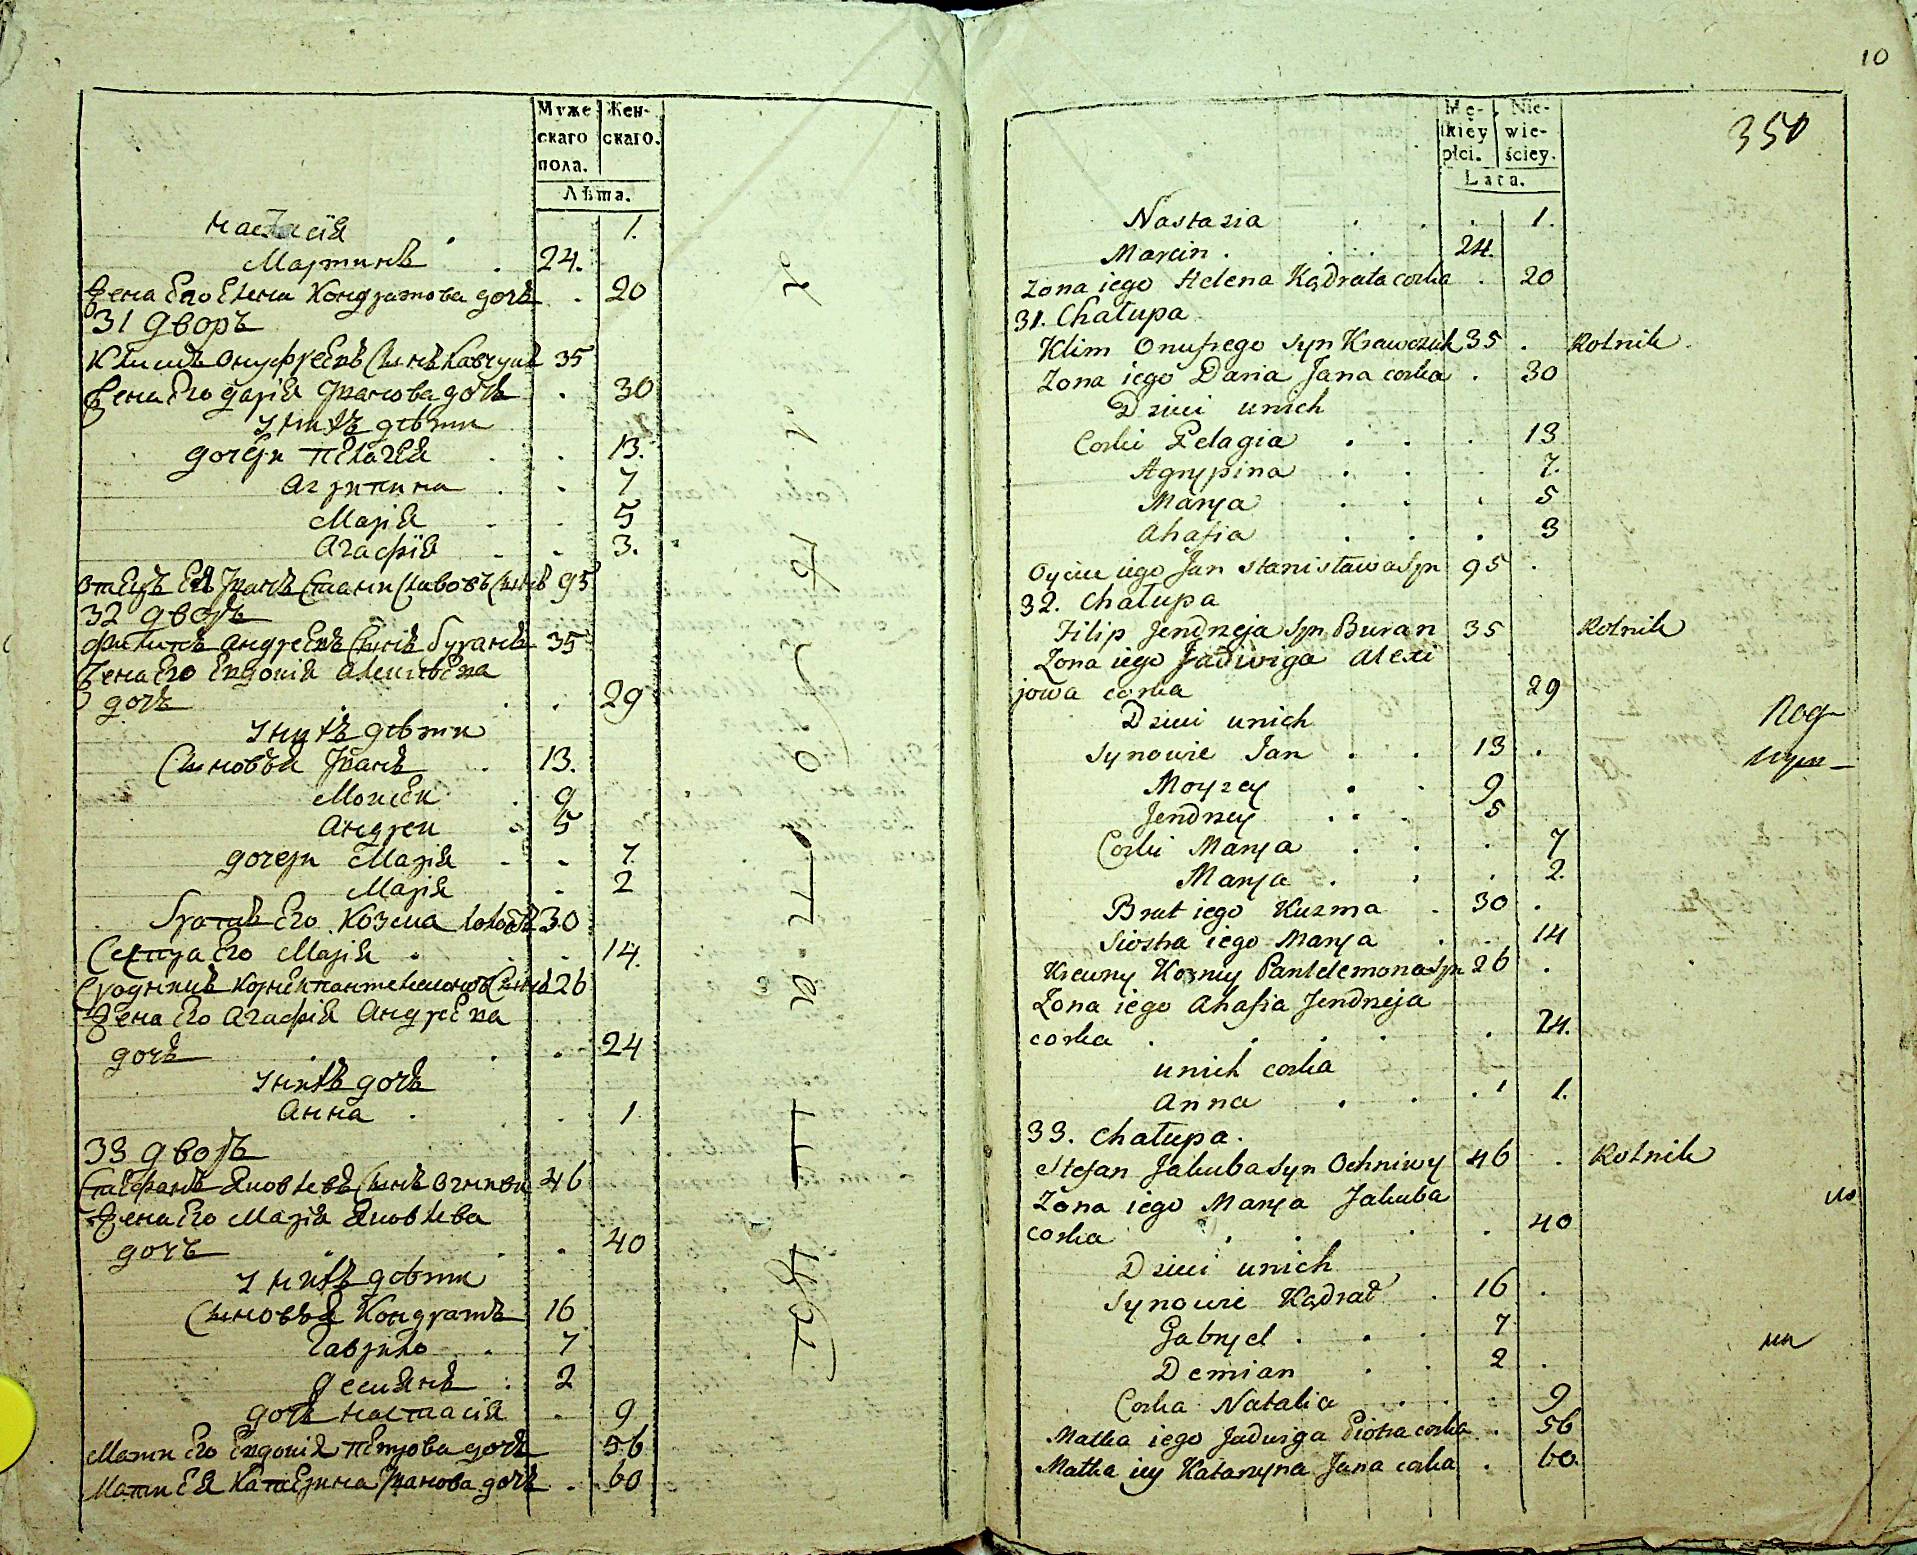 Муже
скаго
пола.
Жен-
скаго.
Лѣта.
Настасія . 1.
Мартинъ . 24.
Жена Его Елена Кондратова дочь . 20
31 дворъ
Климъ Онуфреевъ Сынъ Кавчукъ 35
Жена Его Дарія Іванова дочь . 30
У нихъ дѣти
дочери Пелагея . . 13.
Агрипина . . 7
Марія . . 5
Агафія . . 3.
Отецъ Ея Іванъ Станиславовъ Сынъ 95
32 дворъ
Филипъ Андреевъ Сынъ Буранъ 35
Жена Его Евдокія Алексѣева
дочь . . 29
У нихъ дѣти
Сыновья Іванъ . 13.
Моисей . 9
Андрей . 5
дочери Марія . . 7
Марія . . 2
Братъ Его Козма холостъ 30
Сестра Его Марія . . 14.
Сродникъ Корней Пантелемоновъ Сынъ 26
Жена Его Агафія Андреева
дочь . . . 24
У нихъ дочь
Анна . . 1.
33 дворъ
Стефанъ Яковлевъ Сынъ Огнивы 46
Жена Его Марія Яковлева
дочь . . . 40
У нихъ дѣти
Сыновья Кондратъ 16
Гаврило . 7
Демьянъ . 2
дочь Настасія . 9
Мати Его Евдокія Петрова дочь 56
Мати Ея Катерина Іванова дочь . 60
10
350
Mę-
skiey
płci.
Nie-
wie-
ściey.
Lata.
Nastazia . . . 1.
Marcin . . . 24.
Zona iego Helena Kądrata corka . 20
31. Chałupa
Klim Onufrego Syn Krawczuk 35 . Rolnik.
Zona iego Daria Jana corka . 30
Dzieci unich
Corki Pelagia . . . 13
Agrypina . . . 7.
Marya . . . 5
Ahafia . . . 3
Oyciec iego Jan Stanisława Syn 95 .
32. Chałupa
Filip Jendrzeja Syn Buran 35 Rolnik
Zona iego Jadwiga Alexi
jowa corka 29
Dzieci unich
Synowie Jan . . 13 .
Moyzey . . 9
Jendrzey . . . 5
Corki Marya . . . 7
Marya . . . 2.
Brat iego Kuzma . 30 .
Siostra iego Marya . . 14
Krewny Korniy Pantelemona Syn 26 .
Zona iego Ahafia Jendrzeja
corka . . . . . 24.
unich corka
Anna . . . 1.
33. Chałupa.
Stefan Jakuba Syn Ochniwy 46 . Rolnik
Zona iego Marya Jakuba
corka . . . . 40
Dzieci unich
Synowie Kądrat . 16 .
Gabryel . . . 7
Demian . . 2 .
Corka Natalia . . . 9
Matka iego Jadwiga Piotra corka . 56
Matka iey Katarzyna Jana corka . 60.